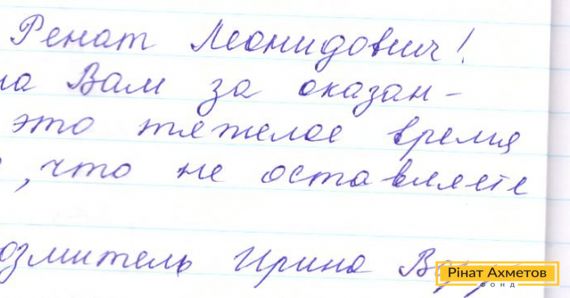 Ренат Леонидович!
на Вам за оказан-
это тяжелое время
, что не оставляете
Ирина
Рінат Ахметов
ФОНД